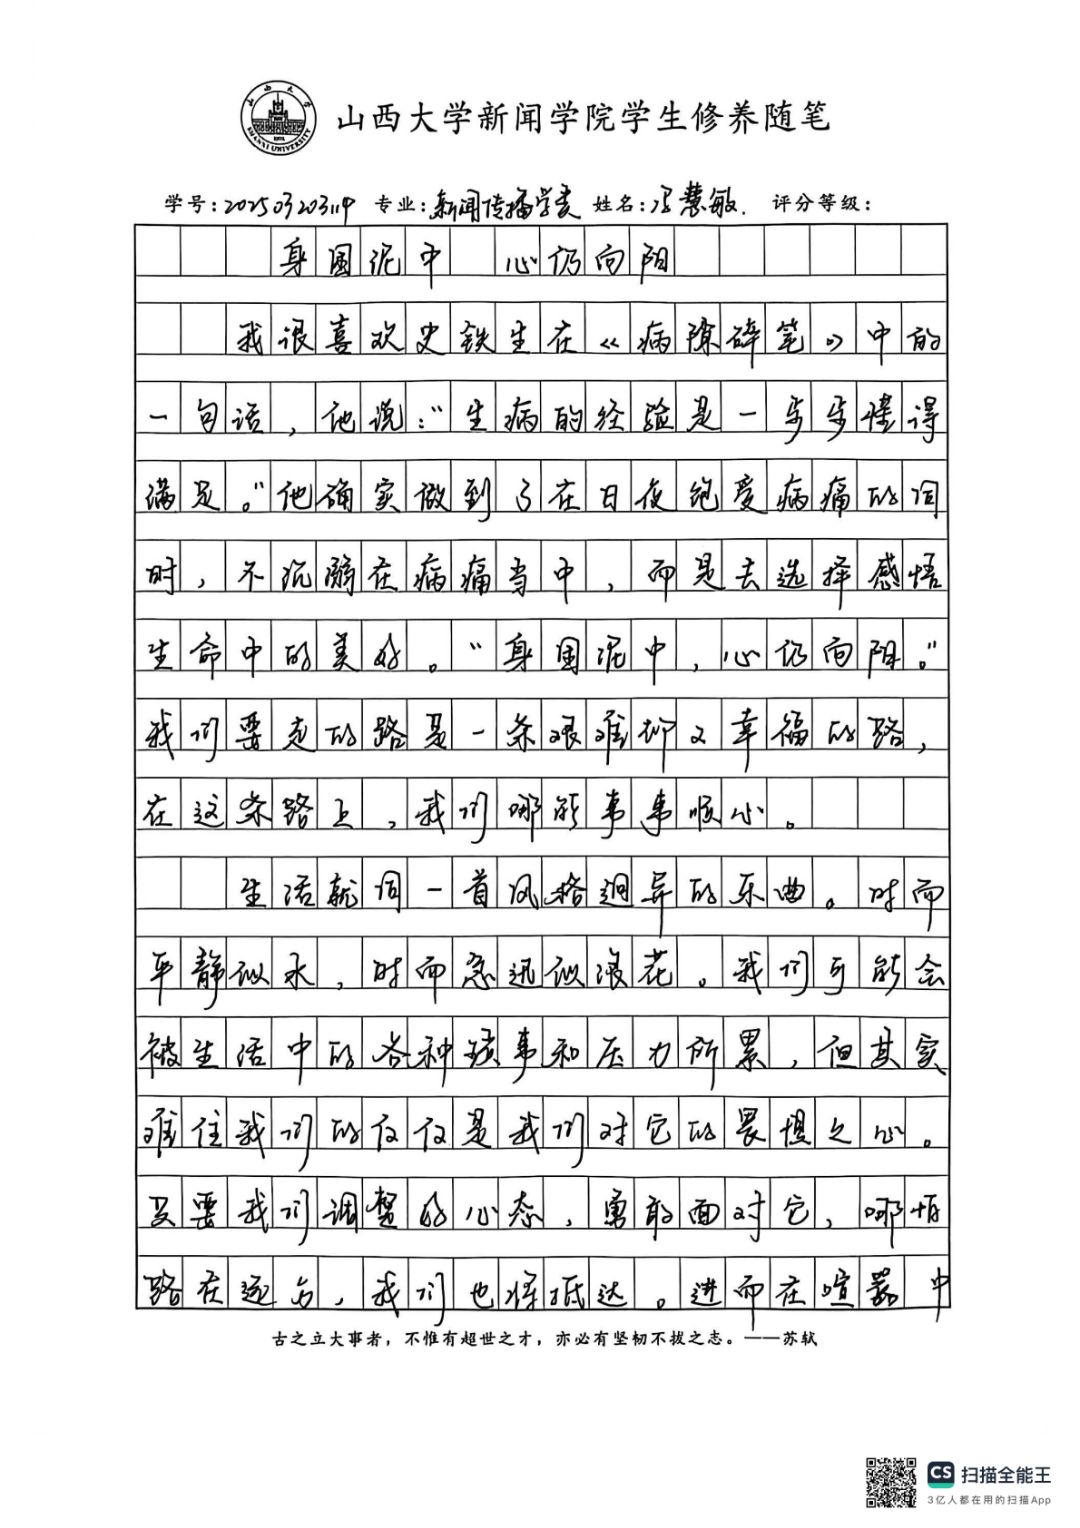 山西大学新闻学院学生修养随笔
SHANXI UNIVERSITY
学号：202503203119 专业：新闻传播学类 姓名：冯慧敏. 评分等级：
身困泥中 心仍向阳
我很喜欢史铁生在《病隙碎笔》中的
一句话，他说："生病的经验是一步步懂得
满足。"他确实做到了在日夜饱受病痛的同
时，不沉溺在病痛当中，而是去选择感悟
生命中的美好。"身困泥中，心仍向阳。"
我们要走的路是一条艰难却又幸福的路，
在这条路上，我们哪能事事顺心。
生活就同一首风格迥异的乐曲。时而
平静似水，时而急迅似浪花。我们可能会
被生活中的各种琐事和压力所累，但其实
难住我们的仅仅是我们对它的畏惧之心。
只要我们调整好心态，勇敢面对它，哪怕
路在远方，我们也将抵达。进而在喧嚣中
古之立大事者，不惟有超世之才，亦必有坚韧不拔之志。——苏轼
CS 扫描全能王
3亿人都在用的扫描App